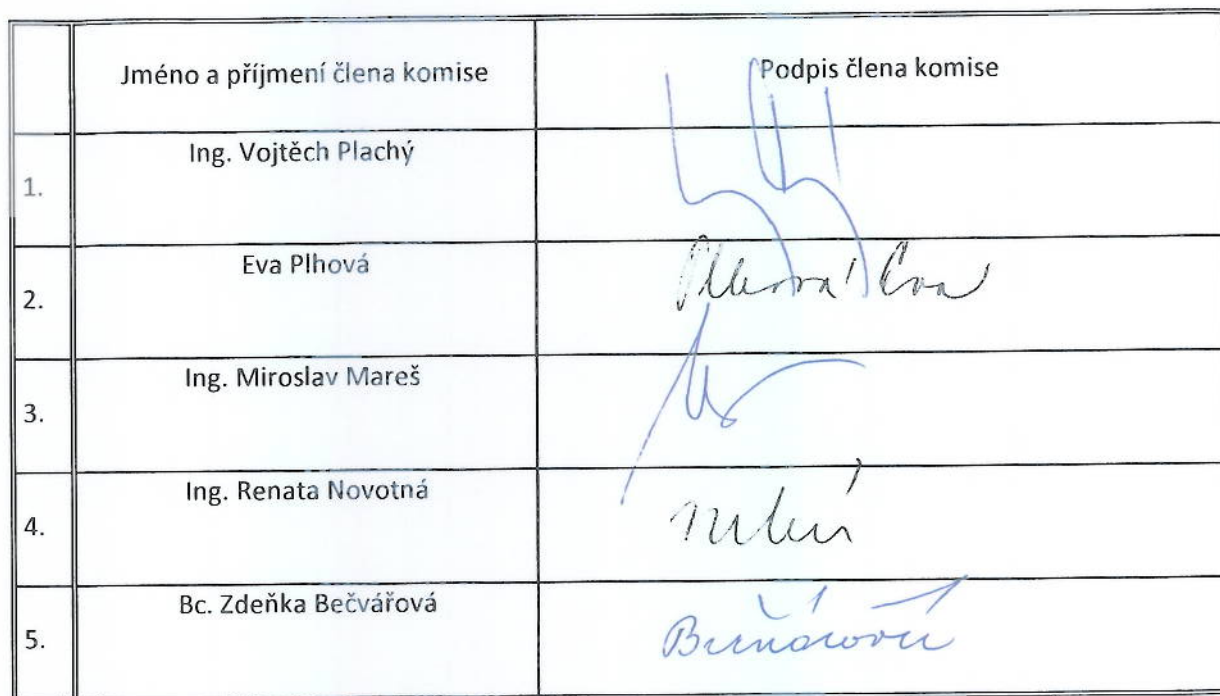 Jméno a příjmení člena komise Podpis člena komise
1. Ing. Vojtěch Plachý
2. Eva Plhová Plhová Eva
3. Ing. Miroslav Mareš
4. Ing. Renata Novotná
5. Bc. Zdeňka Bečvářová